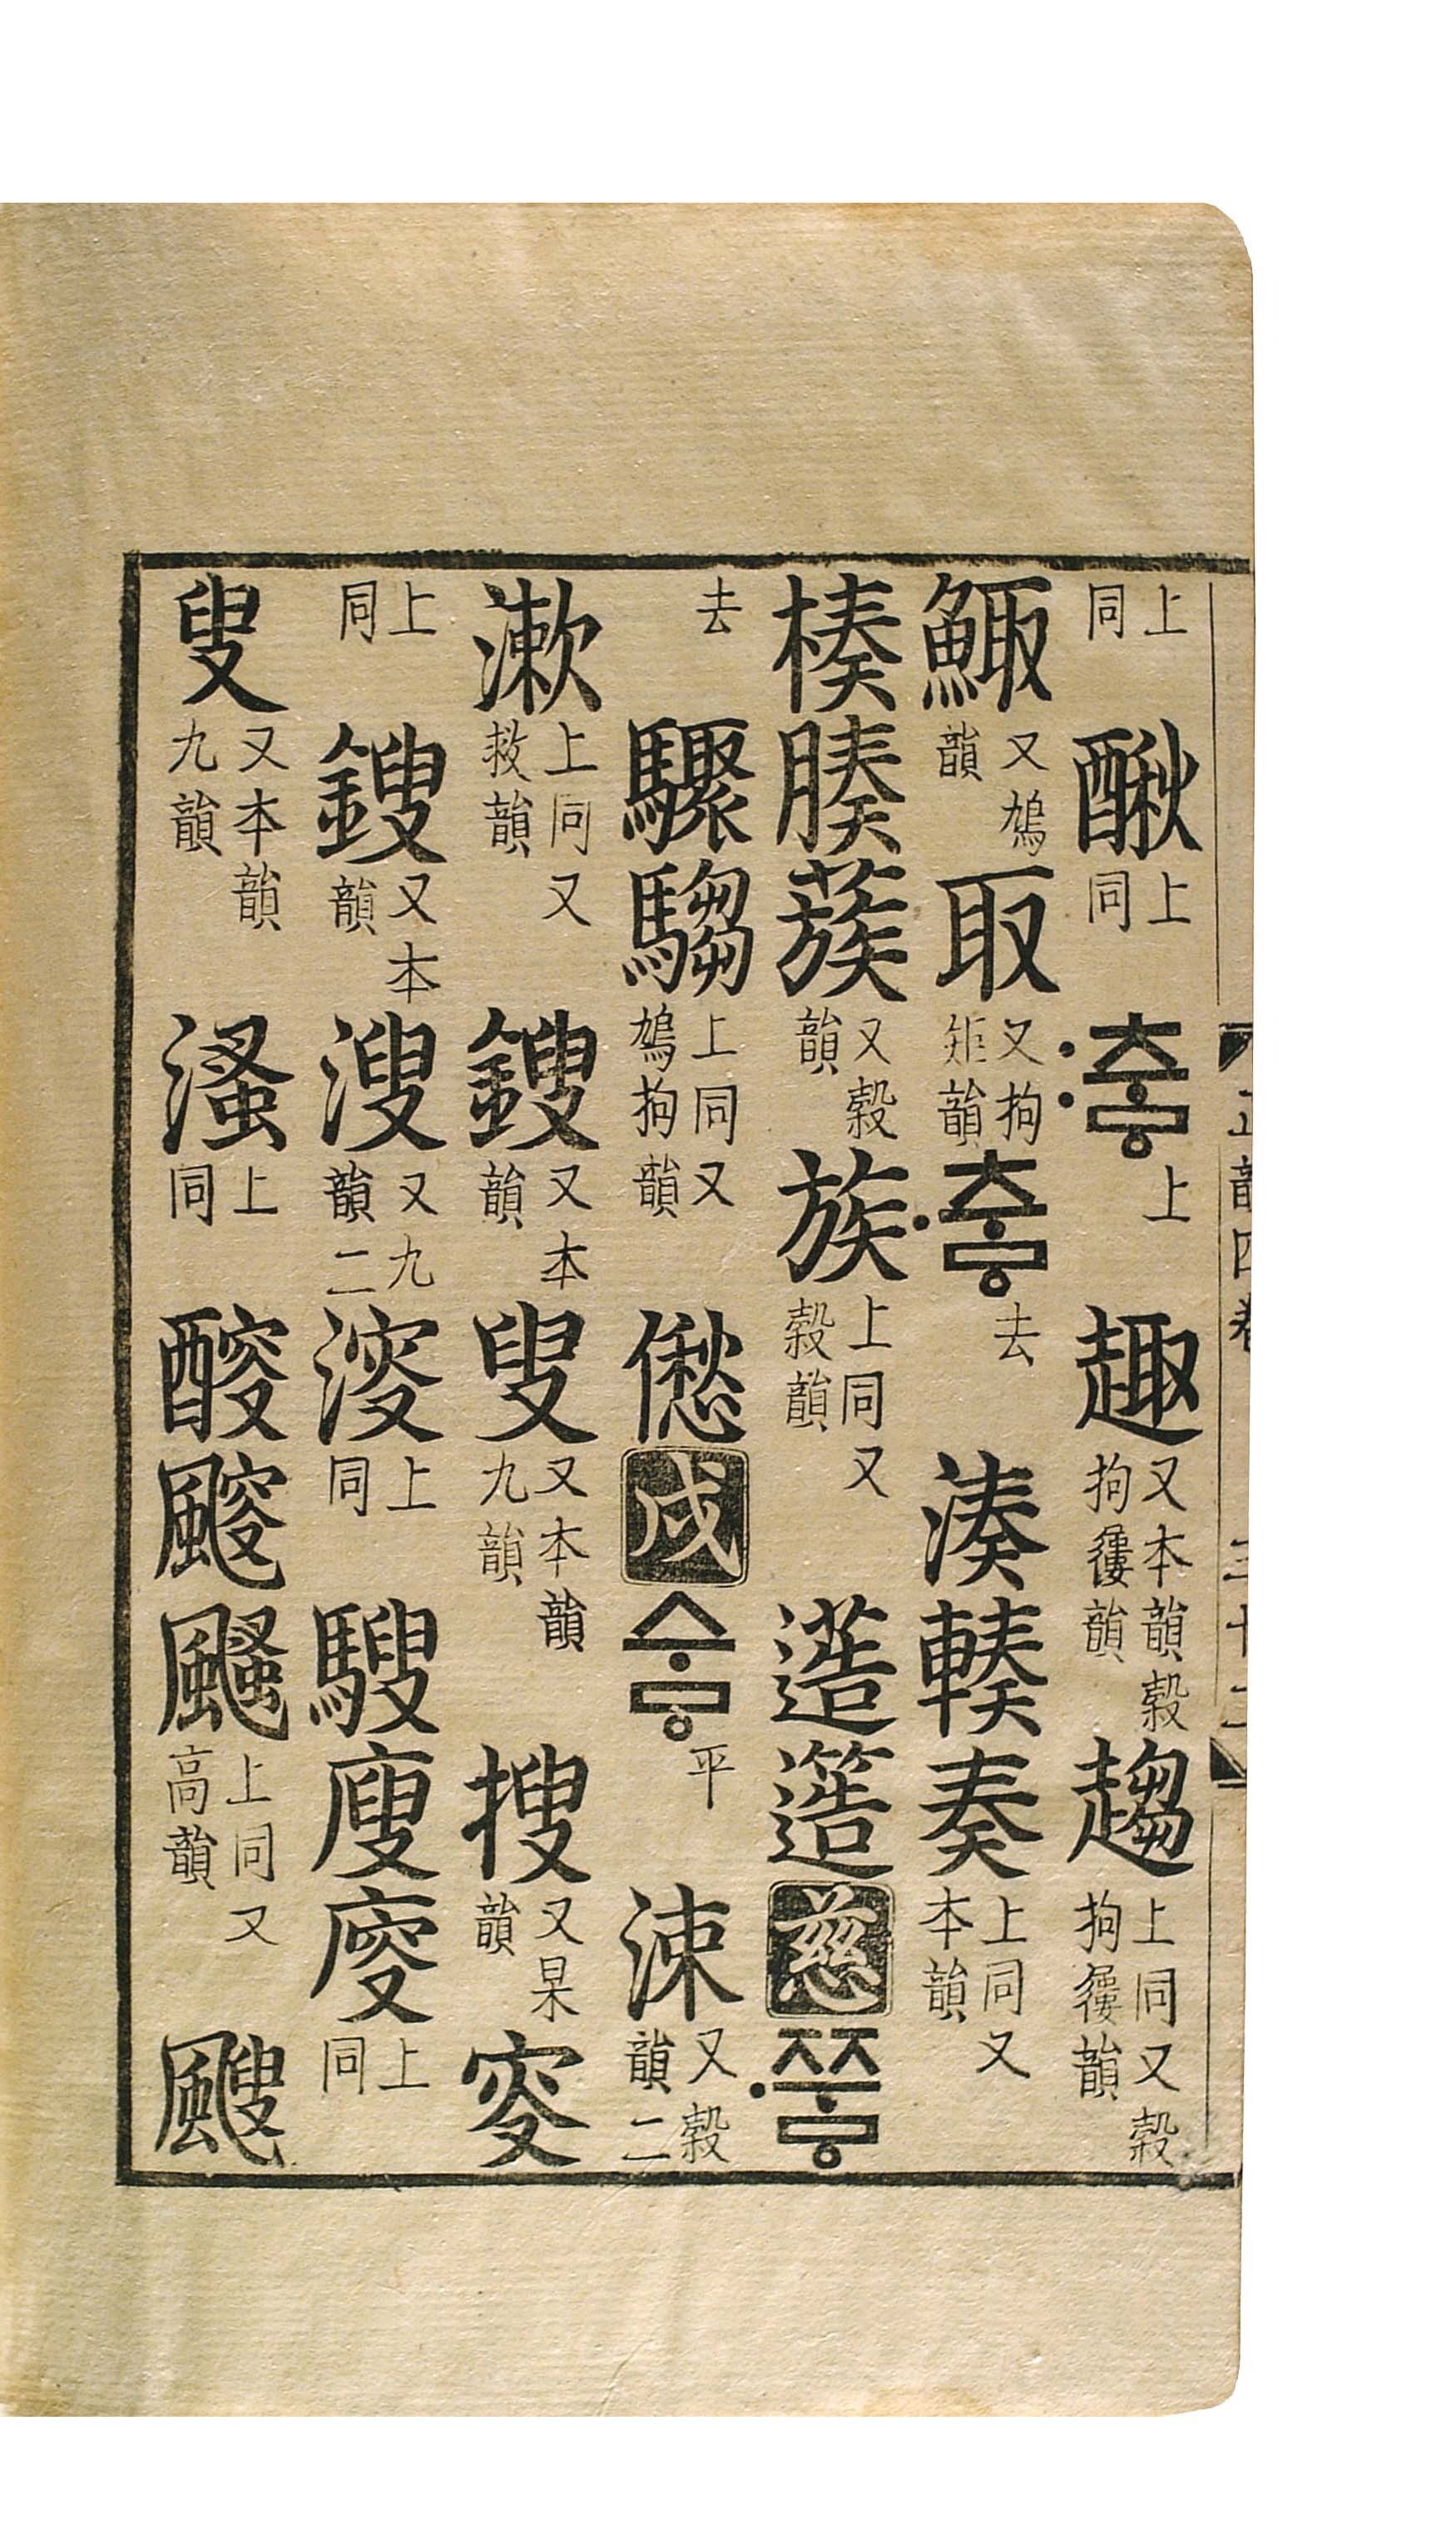 上同 上同 〯츠ᇢ 上 趣 又本韻穀拘屨韻 趨 上同又穀拘屨韻
鯫 又鳩韻 取 又拘矩韻 〮츠ᇢ 去 湊輳奏 上同又本韻
楱腠蔟 又穀韻 族 上同又穀韻 䔏簉 慈 〮쯔ᇢ
去 驟騶 上同又鳩拘韻 僽 戌 스ᇢ 平 涑 又穀韻二
漱 上同又救韻 鎪 又本韻 叟 又本韻九韻 搜 又杲韻 叜
上同 鎪 又本韻 溲 又九韻二 上同 騪廋 上同
叟 又本韻九韻 溞 上同 醙 颾 上同又高韻 颼